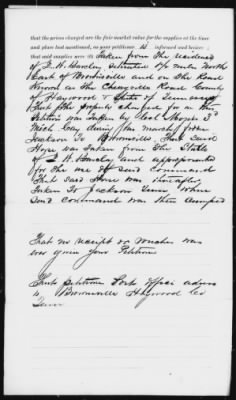 that the prices charged are the fair market value for the supplies at the time
and place last mentioned, as your petitioner is informed and believes;
that said supplies were Taken from the residence
of L. H. situated 1½ miles North
East of Brownsville and on the Road
Known as the Road County
of Haywood & State of Tennessee
That the property charged for in this
Petition was taken by Col
Mich Cav during the march from
Jackson to Brownsville That said
was taken from the Stable
of L. H. and appropriated
for the use of said Command
That said Horse was thereafter
taken to Jackson Tenn where
said command was then camped
That no receipt or voucher was
ever given your Petitioner
That Petitioners Post office address
is Brownsville Haywood Co
Tenn